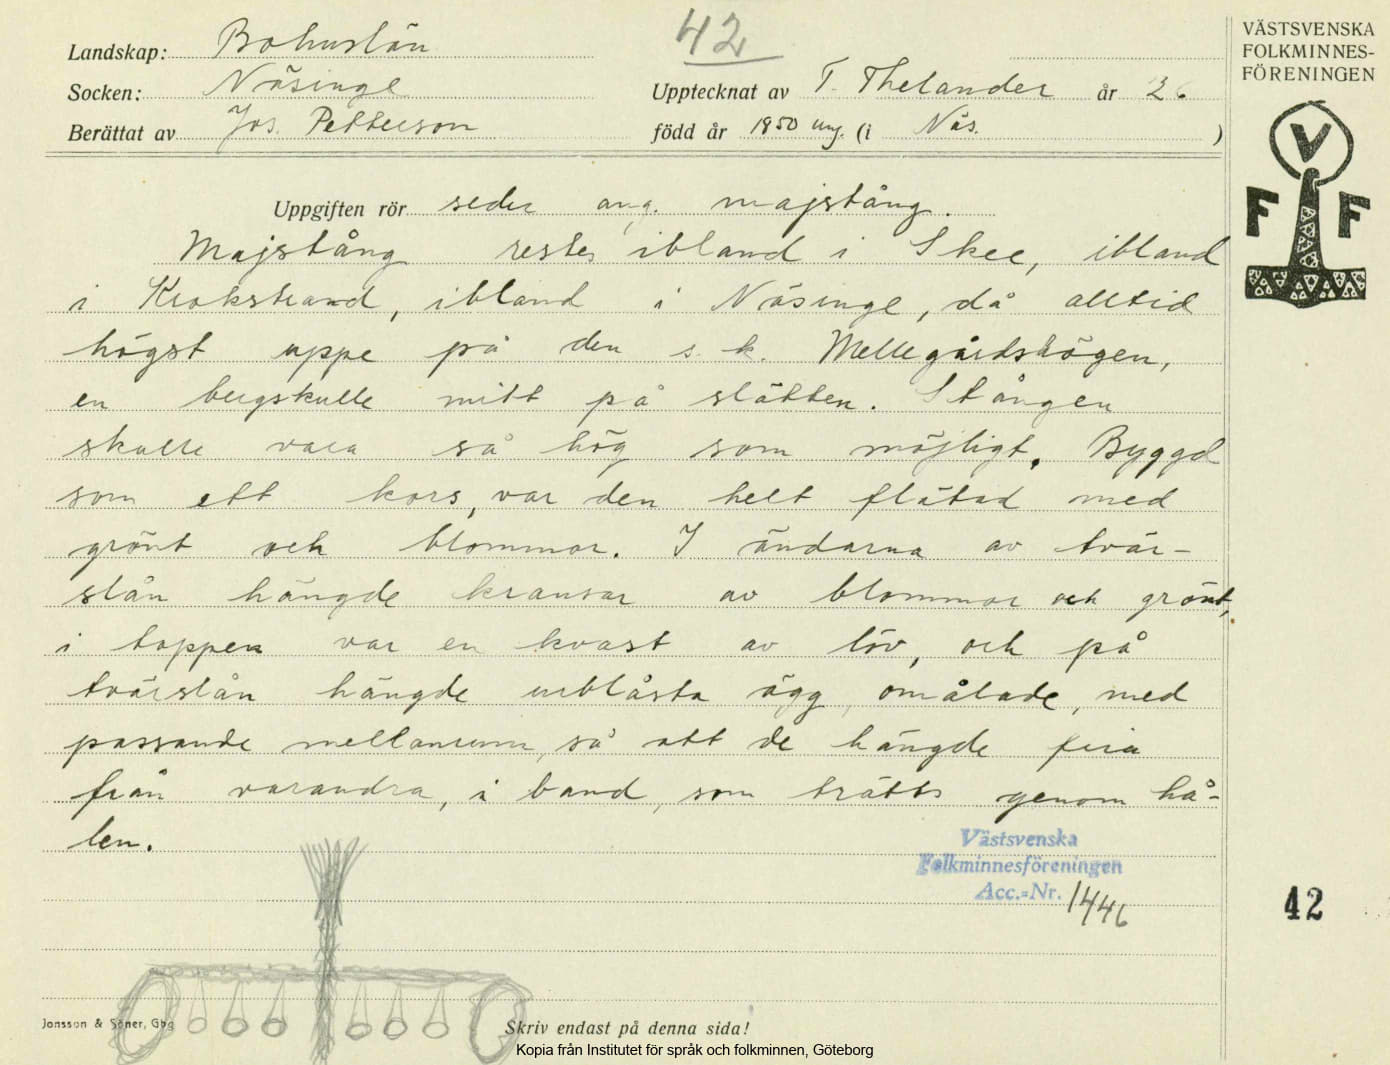 42
Landskap: Bohuslän
Socken: Näsinge
Berättat av Jos. Petterson
Upptecknat av T. Thelander år 26
född år 1850 ung. (i Näs. )
Uppgiften rör seder ang. majstång.
Majstång restes ibland i Skee, ibland
i Krokstrand, ibland i Näsinge, då alltid
högst uppe på den s. k. Mellegårdshögen,
en bergskulle mitt på slätten. Stången
skulle vara så hög som möjligt. Byggd
som ett kors, var den helt flätad med
grönt och blommor. I ändarna av tvär-
slån hängde kransar av blommor och grönt,
i toppen var en kvast av löv, och på
tvärslån hängde urblåsta ägg, omålade, med
passande mellanrum, så att de hängde fria
från varandra, i band, som trätts genom hå-
len.
Västsvenska
Folkminnesföreningen
Acc.=Nr. 1446
Jonsson & Söner, Gbg
Skriv endast på denna sida!
Kopia från Institutet för språk och folkminnen, Göteborg
VÄSTSVENSKA
FOLKMINNES-
FÖRENINGEN
V
F F
42